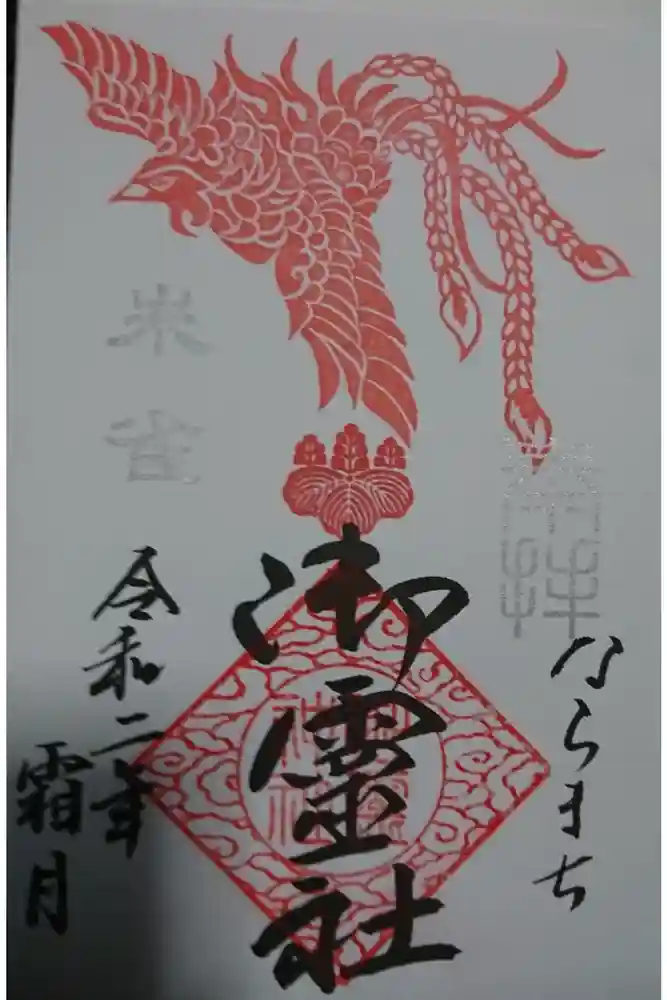 奉拝
ならまち
御霊社
朱雀
令和二年
霜月